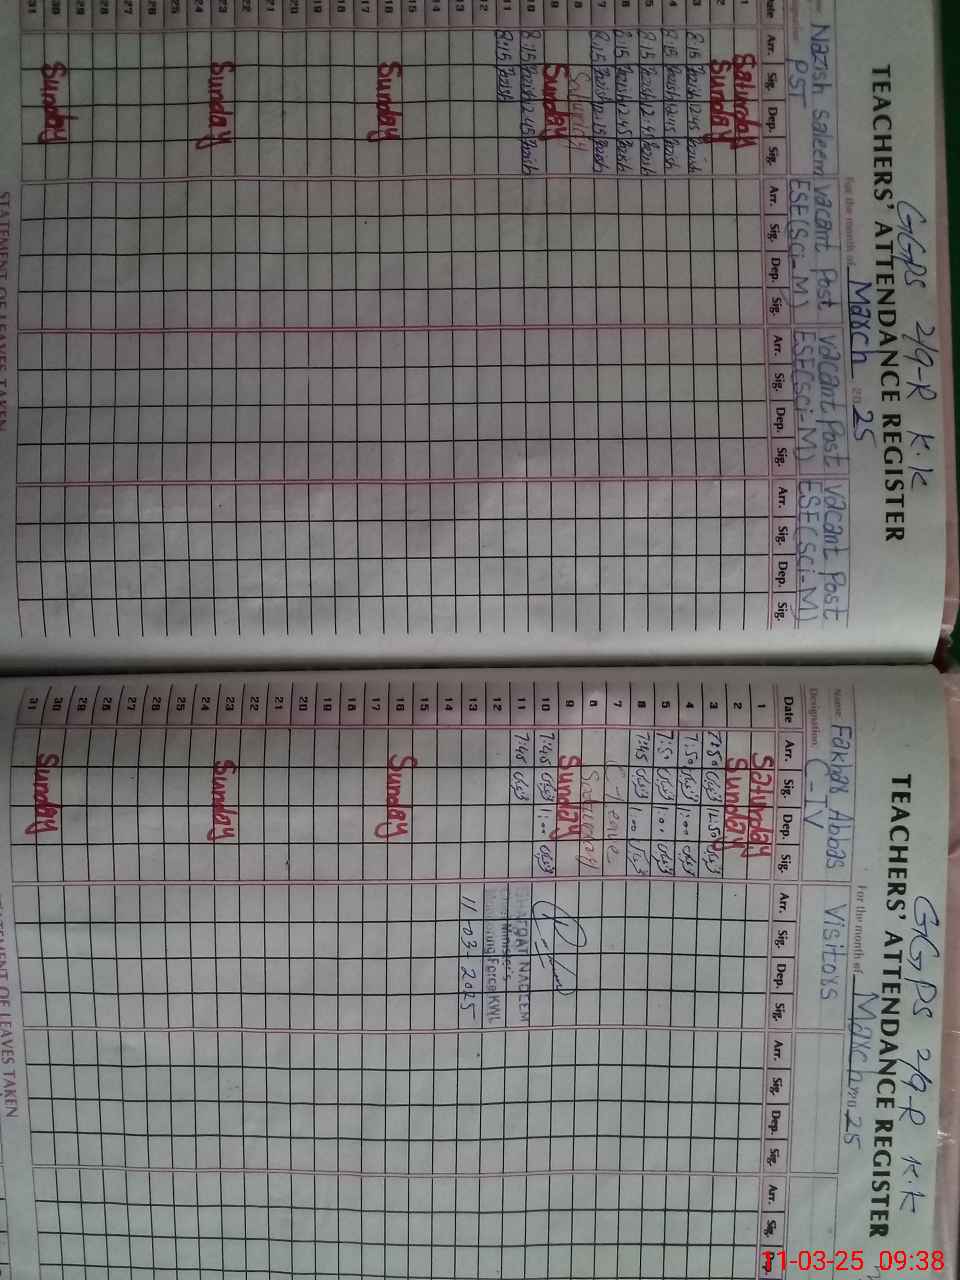 GGPS 2/9-R K.K
TEACHERS' ATTENDANCE REGISTER
For the month of March 2025
Nazish Saleem Vacant Post Vacant Post Vacant Post
PST ESE(Sci-M) ESE(Sci-M) ESE(Sci-M)
Date Arr. Sig. Dep. Sig. Arr. Sig. Dep. Sig. Arr. Sig. Dep. Sig. Arr. Sig. Dep. Sig.
1 Saturday
2 Sunday
3 8:15 Nazish 12:45 Nazish
4 8:15 Nazish 12:45 Nazish
5 8:15 Nazish 12:45 Nazish
6 8:15 Nazish 12:45 Nazish
7 8:15 Nazish 12:15 Nazish
8 Saturday
9 Sunday
10 8:15 Nazish 12:45 Nazish
11 8:15 Nazish
12
13
14
15
16
17 Sunday
18
19
20
21
22
23 Sunday
24
25
26
27
28
29
30 Sunday
31
STATEMENT OF LEAVES TAKEN
GGPS 2/9-R K.K
TEACHERS' ATTENDANCE REGISTER
For the month of March 2025
Name Fakhar Abbas Visitors
Designation C-IV
Date Arr. Sig. Dep. Sig. Arr. Sig. Dep. Sig. Arr. Sig. Dep. Sig. Arr. Sig. Dep.
1 Saturday
2 Sunday
3 7:50 12:50
4 7:50 1:00
5 7:50 1:00
6 7:45 1:00
7 C-Leave
8 Saturday
9 Sunday
10 7:45 1:00
11 7:45
SHAFQAT NADEEM
Chief Minister's
Monitoring Force KWL
11-03-2025
12
13
14
15
16 Sunday
17
18
19
20
21
22
23 Sunday
24
25
26
27
28
29
30 Sunday
31
STATEMENT OF LEAVES TAKEN
11-03-25 09:38